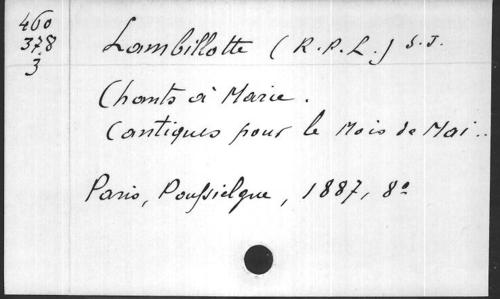 460
378
3
Lambillotte (R.P.L.) S.J.
Chants à Marie.
Cantiques pour le Mois de Mai..
Paris, Poussielgue, 1887, 8º